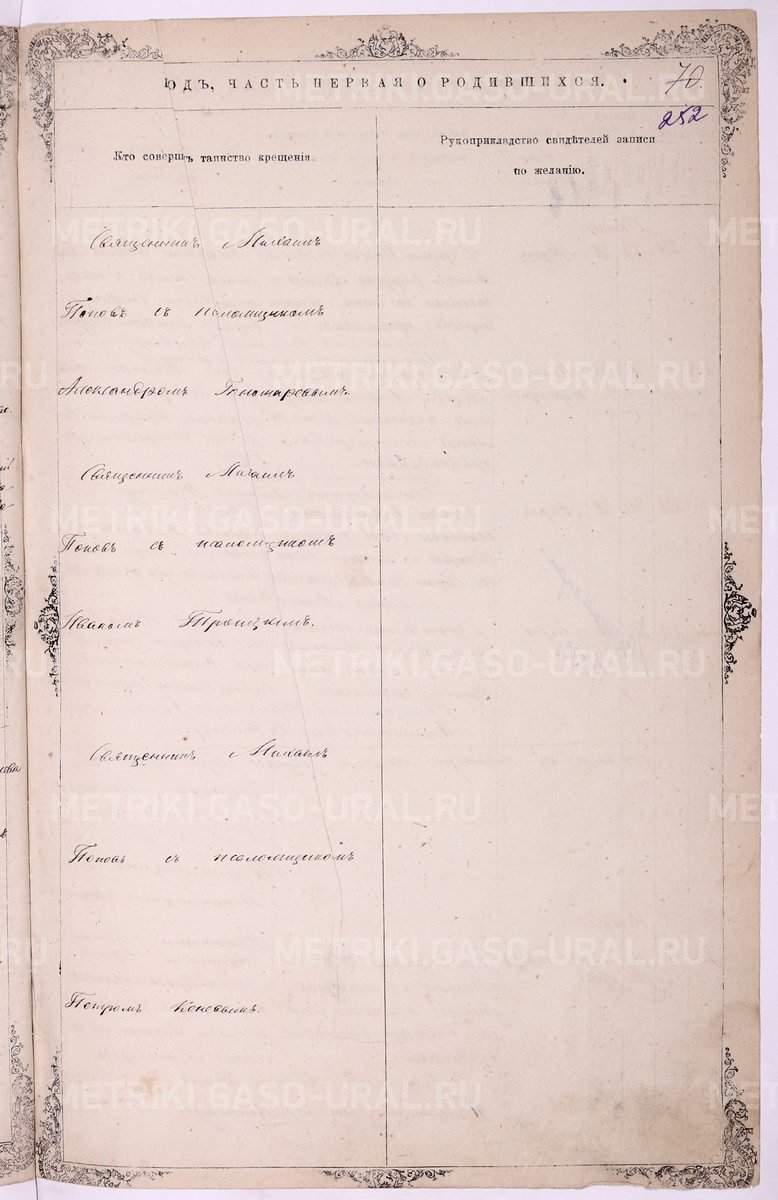 ГОДЪ, ЧАСТЬ ПЕРВАЯ О РОДИВШИХСЯ.
70
252
Кто соверш. таинство крещенія.
Рукоприкладство свидѣтелей записи
по желанію.
Священникъ Михаилъ
Поповъ съ псаломщикомъ
Александромъ Пономаревымъ.
Священникъ Михаилъ
Поповъ съ псаломщикомъ
Иваномъ Троицкимъ.
Священникъ Михаилъ
Поповъ съ псаломщикомъ
Петромъ Коневымъ.
METRIKI.GASO-URAL.RU